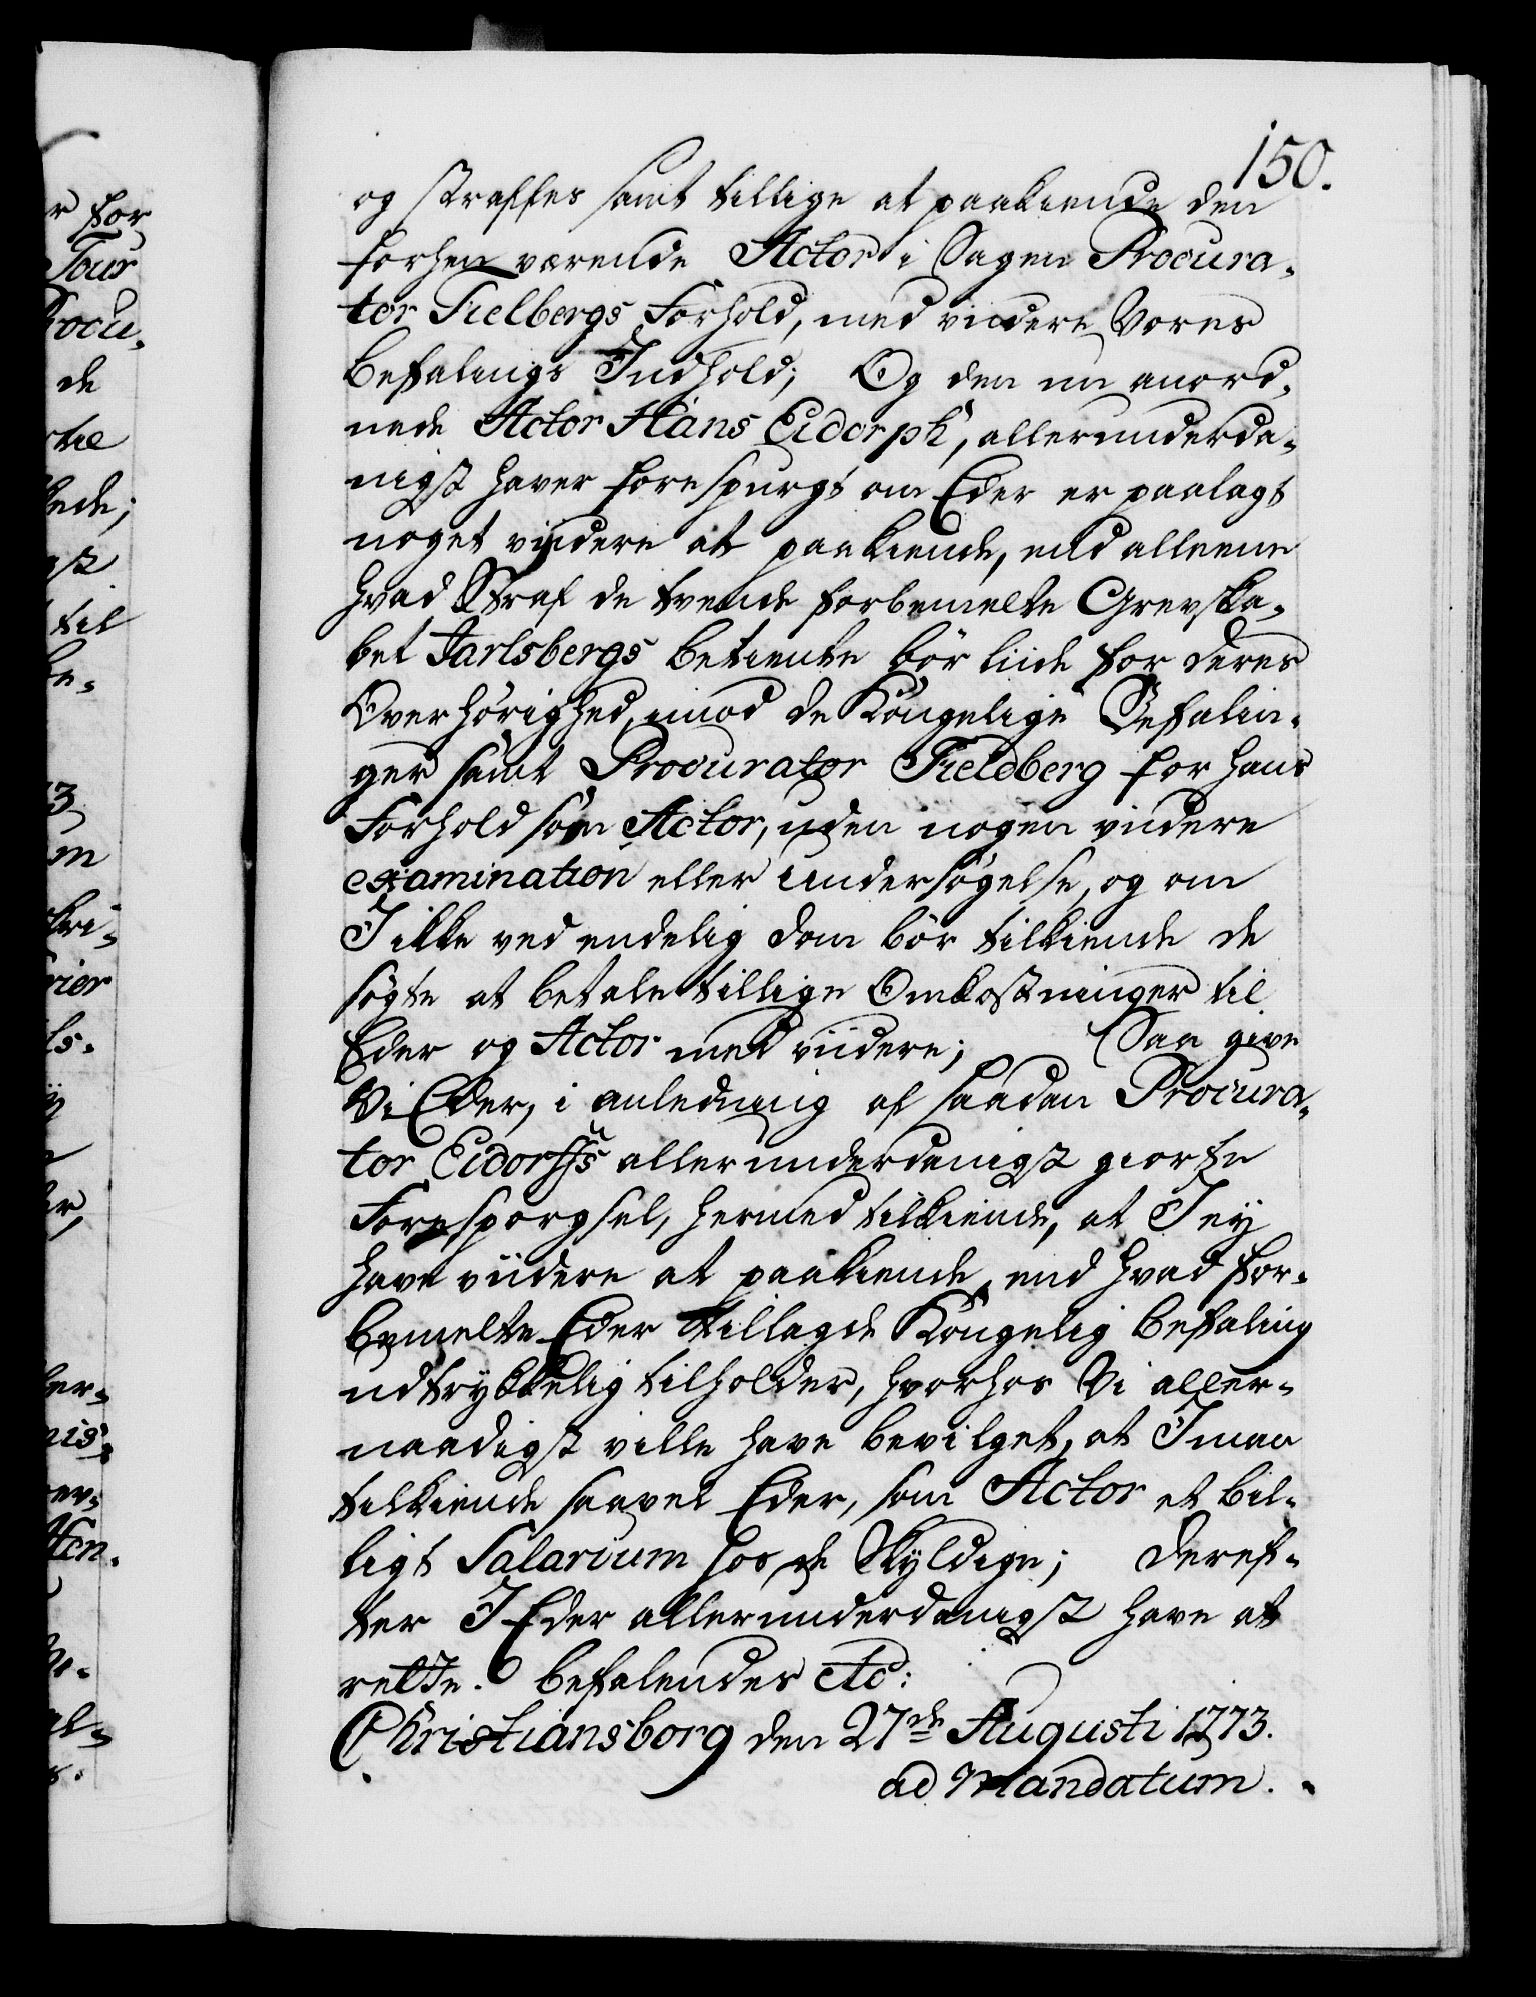 150.
og straffes samt tillige at paakiende den
forhen værende Actor i Sagen Procura-
tor Fielbergs Forhold, med viidere Vores
Befalings Indhold; Og den nu anord-
nede Actor Hans Eidorph, allerunderda-
nigst haver forespurgt om Eder er paalagt
noget viidere at paakiende, end alleene
hvad Straf de tvende forbemelte Grevska-
bet Jarlsbergs Betiente bör liide for deres
Overhörighed imod de Kongelige Befalin-
ger samt Procurator Fieldberg for hans
Forhold som Actor, uden nogen viidere
examination eller undersögelse, og om
I ikke ved endelig Dom bör tilkiende de
sögte at betale tillige Omkostninger til
Eder og Actor med viidere; Saa give
Vi Eder, i anledning af saadan Procura-
tor Eidorffs allerunderdanigst giorte
Forespörgsel, hermed tilkiende, at I ey
have viidere at paakiende, end hvad for-
bemelte Eder tillagde Kongelig Befaling
udtrykkelig tilholder, hvorhos Vi aller-
naadigst ville have bevilget, at I maa
tilkiende saavel Eder, som Actor et bil-
ligt Salarium hos de Skyldige; Deref-
ter I Eder allerunderdanigst have at
rette. Befalendes etc:
Christiansborg den 27de Augusti 1773.
ad Mandatum.
r for
Tour
Procu-
de
til